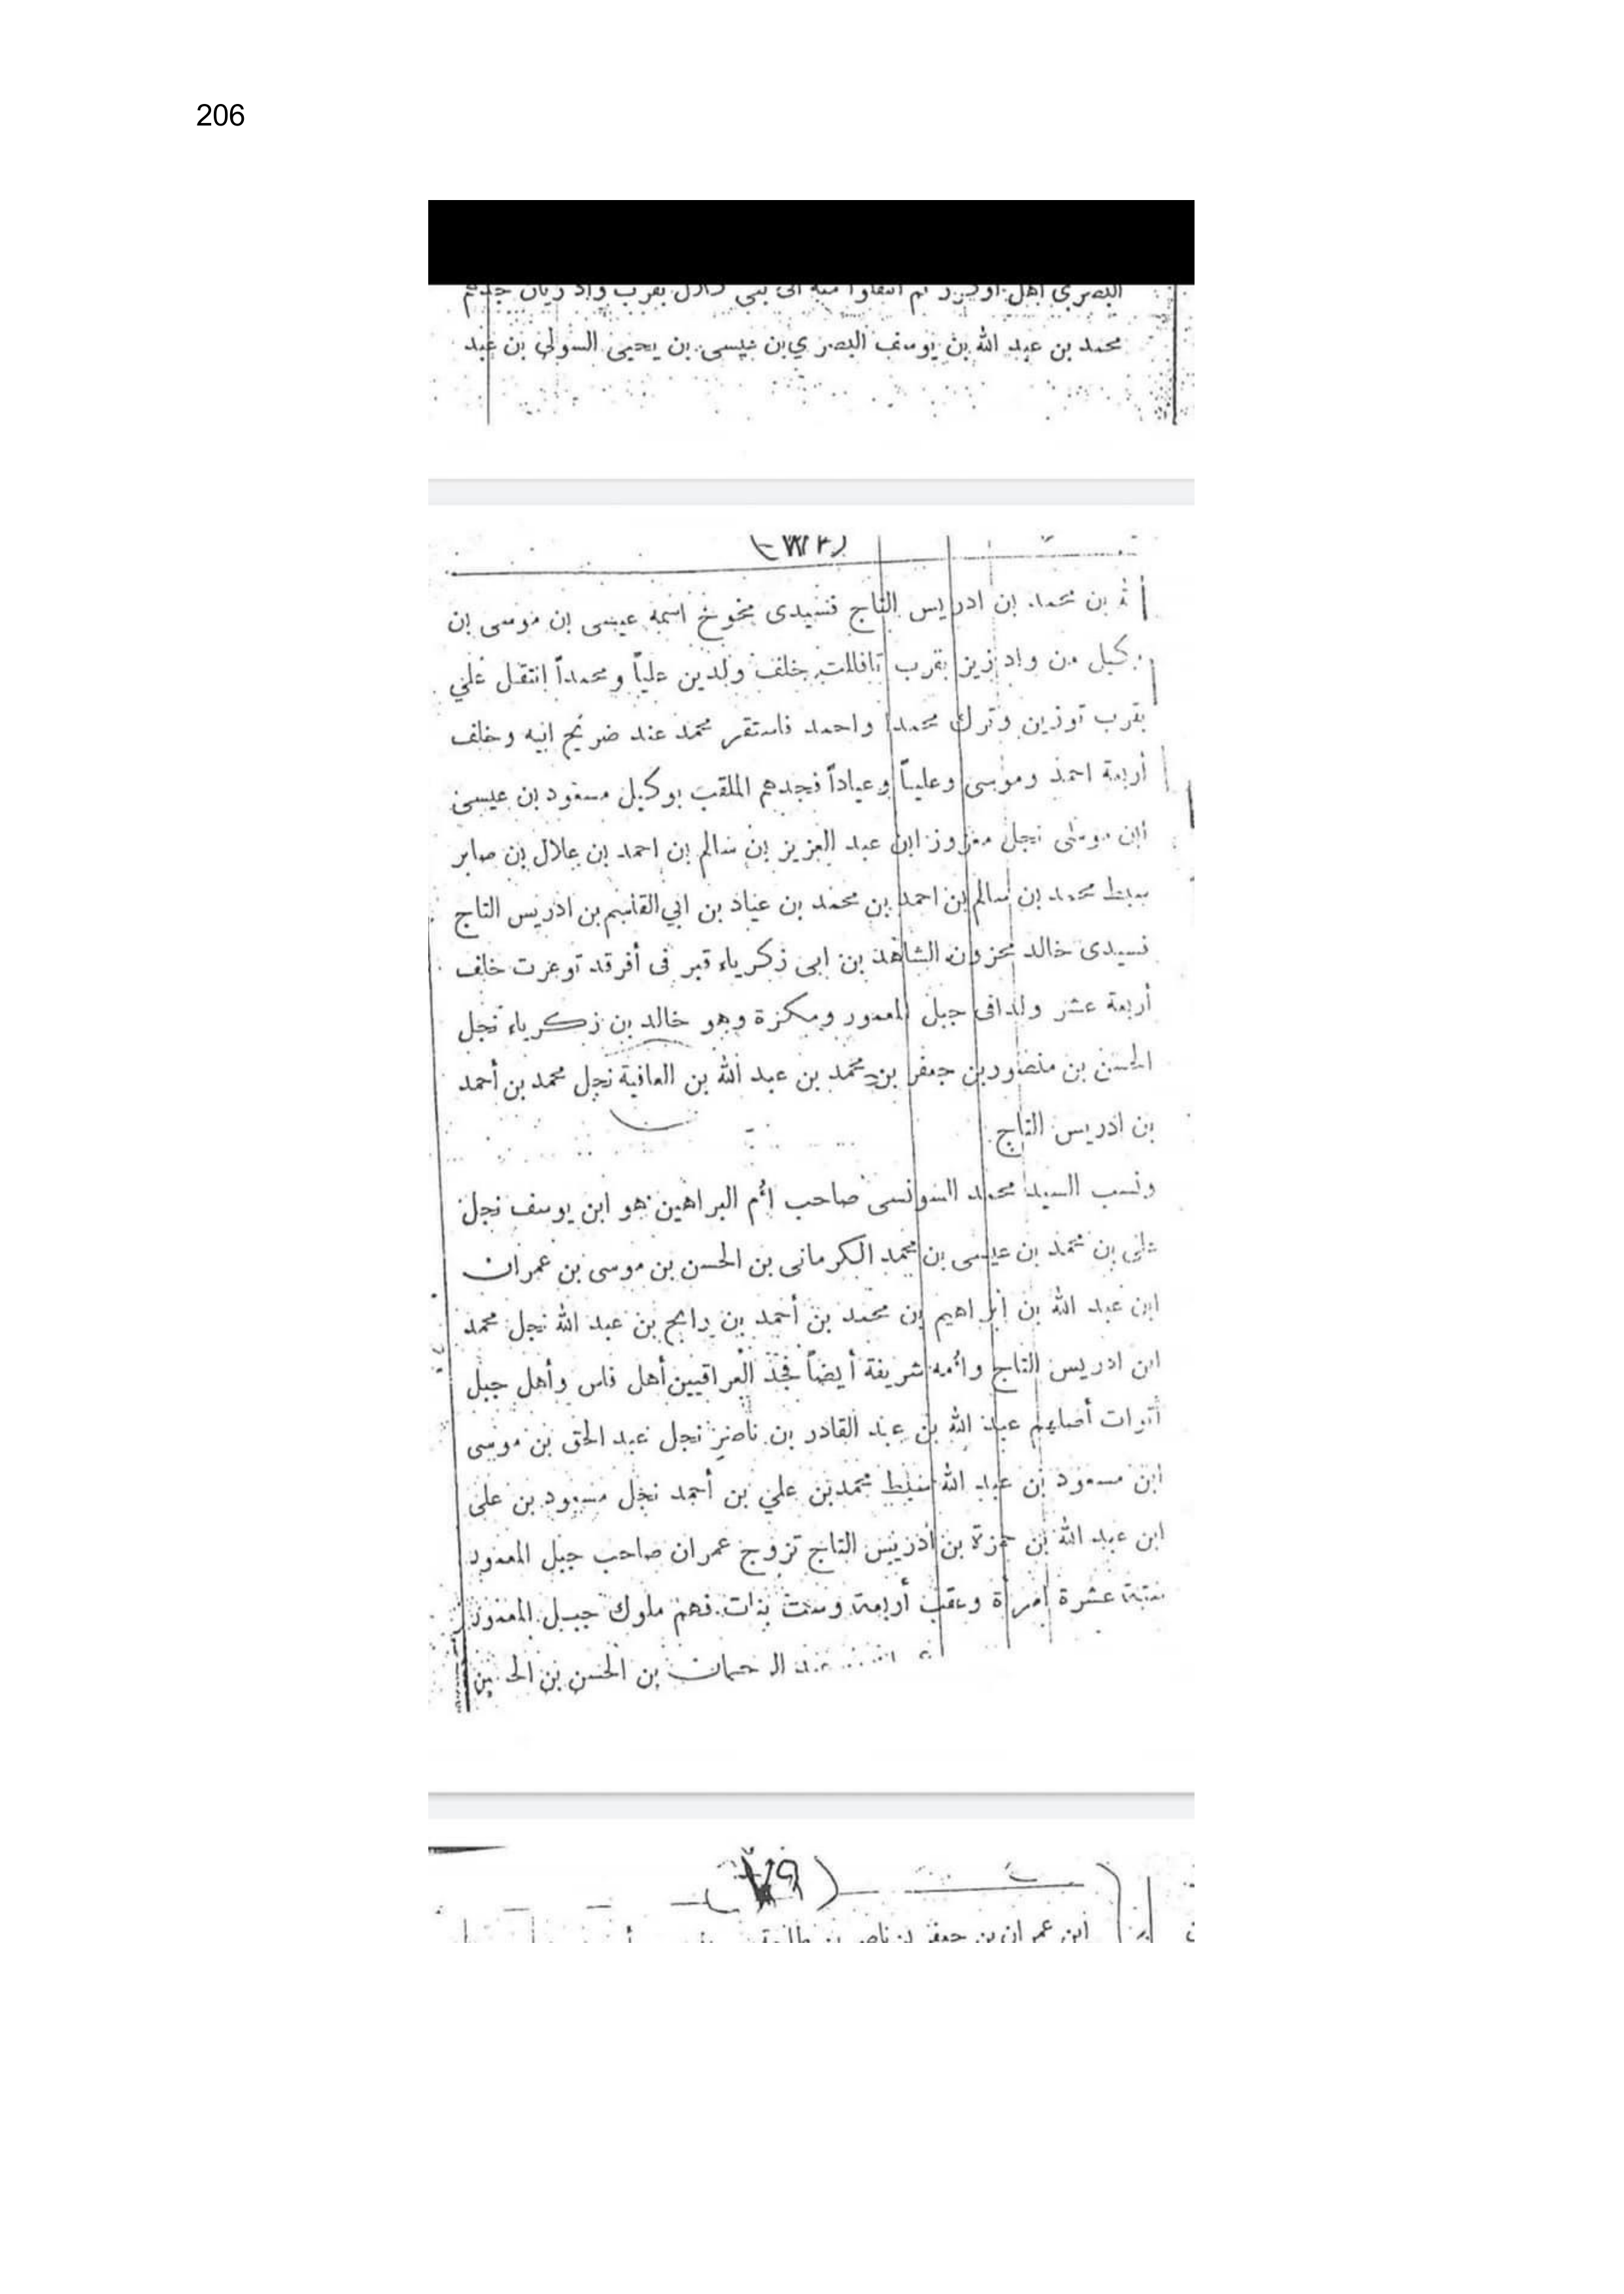 206
محمد بن عبد الله بن يوسف البصري بن عيسى بن يحيى السولى بن عبد
بن محمد بن ادريس التاج فسيدى مخوخ اسمه عيسى بن موسى بن
من واد زيز بقرب تافللت خلف ولدين علياً ومحمداً انتقل علي
بقرب توزين وترك محمدا واحمد فاستقر محمد عند ضريح ابيه وخلف
أربعة احمد وموسى وعلياً وعياداً فجدهم الملقب بوكيل مسعود بن عيسى
ابن موسى نجل معزوز ابن عبد العزيز بن سالم بن احمد بن علال بن صابر
سبط محمد بن سالم بن احمد بن محمد بن عياد بن ابي القاسم بن ادريس التاج
فسيدى خالد محزون الشاهد بن ابى زكرياء قبر فى أفرقد توغرت خلف
أربعة عشر ولدا فى جبل المعمور ومكزة وهو خالد بن زكرياء نجل
الحسن بن منصور بن جعفر بن محمد بن عبد الله بن العافية نجل محمد بن أحمد
بن ادريس التاج
ونسب السيد محمد السونسى صاحب أم البراهين هو ابن يوسف نجل
على بن محمد بن عيسى بن محمد الكرمانى بن الحسن بن موسى بن عمران
ابن عبد الله بن ابراهيم بن محمد بن أحمد بن رابح بن عبد الله نجل محمد
ابن ادريس التاج وأمه شريفة أيضاً فجد العراقيين أهل فاس وأهل جبل
أتوات أصلهم عبد الله بن عبد القادر بن ناصر نجل عبد الحق بن موسى
ابن مسعود بن عبد الله سبط محمد بن علي بن أحمد نجل مسعود بن على
ابن عبد الله بن حمزة بن ادريس التاج تزوج عمران صاحب جبل المعمور
عشرة امرأة وعقب أربعة وست بنات فهم ملوك جبل المعمور
بن الحسن بن الحسين
ابن عمران بن جعفر بن ناصر بن